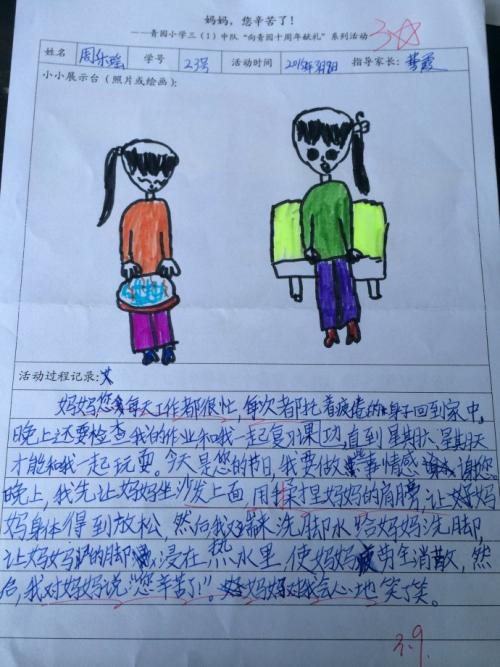 妈妈，您辛苦了！
——青园小学三（1）中队“向青园十周年献礼”系列活动
3☆
姓名 周乐瑶 学号 23号 活动时间 指导家长：
小小展示台（照片或绘画）：
活动过程记录：
妈妈您每天工作都很忙，每次都托着疲倦的身子回到家中，
晚上还要检查我的作业和我一起复习课功，直到星期六、星期天
才能和我一起玩耍。今天是您的节日，我要做些事情感谢您。
晚上，我先让妈妈坐沙发上面，用手揉捏妈妈的肩膀，让妈
妈身体得到放松，然后我又端来洗脚水给妈妈洗脚，
让妈妈的脚浸在热水里，使妈妈疲劳全消散，然
后，我对妈妈说“您辛苦了！”。妈妈对我会心地笑了笑。
3.9.